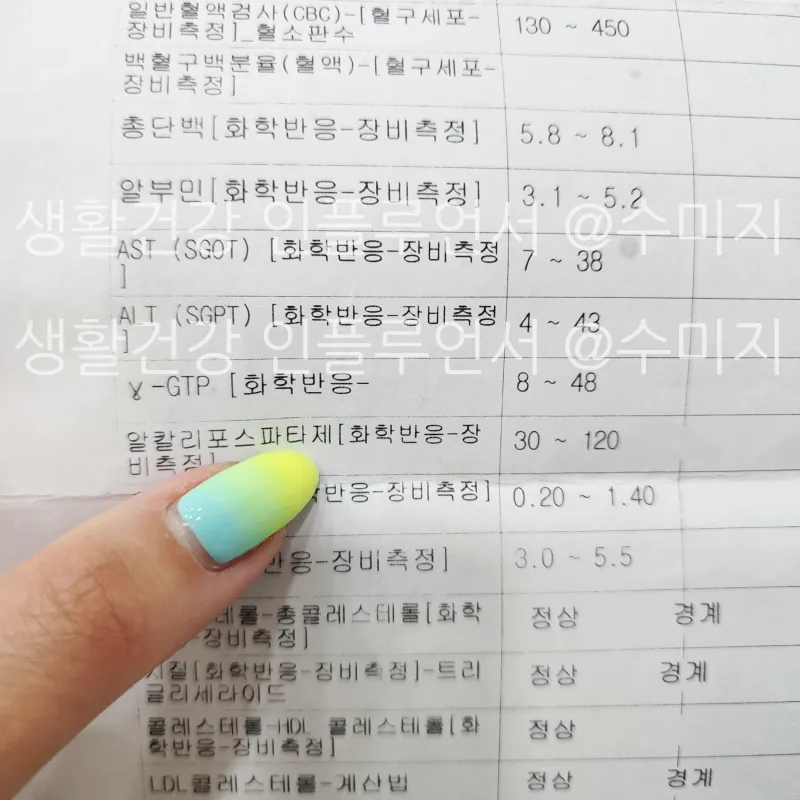 일반혈액검사(CBC)-[혈구세포-
장비측정]_혈소판수
130 ~ 450
백혈구백분율(혈액)-[혈구세포-
장비측정]
총단백[화학반응-장비측정]
5.8 ~ 8.1
알부민[화학반응-장비측정]
3.1 ~ 5.2
생활건강 인플루언서 @수미지
AST (SGOT) [화학반응-장비측정
]
7 ~ 38
ALT (SGPT) [화학반응-장비측정
]
4 ~ 43
생활건강 인플루언서 @수미지
ɣ-GTP [화학반응-
8 ~ 48
알칼리포스파타제[화학반응-장
비측정]
30 ~ 120
반응-장비측정]
0.20 ~ 1.40
반응-장비측정]
3.0 ~ 5.5
레스테롤-총콜레스테롤[화학
-장비측정]
정상 경계
지질[화학반응-장비측정]-트리
글리세라이드
정상 경계
콜레스테롤-HDL 콜레스테롤[화
학반응-장비측정]
정상
LDL콜레스테롤-계산법
정상 경계